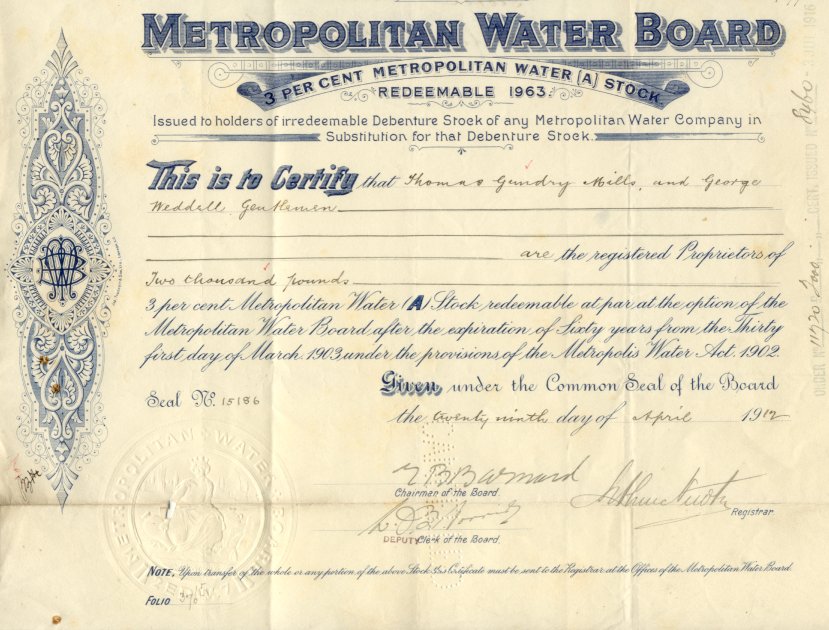 METROPOLITAN WATER BOARD
3 PER CENT METROPOLITAN WATER (A) STOCK
REDEEMABLE 1963.
Issued to holders of irredeemable Debenture Stock of any Metropolitan Water Company in
Substitution for that Debenture Stock.
This is to Certify that Thomas Gundry Mills, and George
Weddall Gentlemen
are the registered Proprietors of
Two thousand pounds
3 per cent Metropolitan Water (A) Stock redeemable at par at the option of the
Metropolitan Water Board after the expiration of Sixty years from the Thirty
first day of March 1903, under the provisions of the Metropolis Water Act. 1902.
Given under the Common Seal of the Board
Seal No. 15186
the twenty ninth day of April 1912
Chairman of the Board.
Registrar.
DEPUTY Clerk of the Board.
METROPOLITAN WATER BOARD
NOTE, Upon transfer of the whole or any portion of the above Stock this Certificate must be sent to the Registrar at the Offices of the Metropolitan Water Board.
FOLIO
ORDER No 11720 CERT. ISSUED 3 JUL 1916